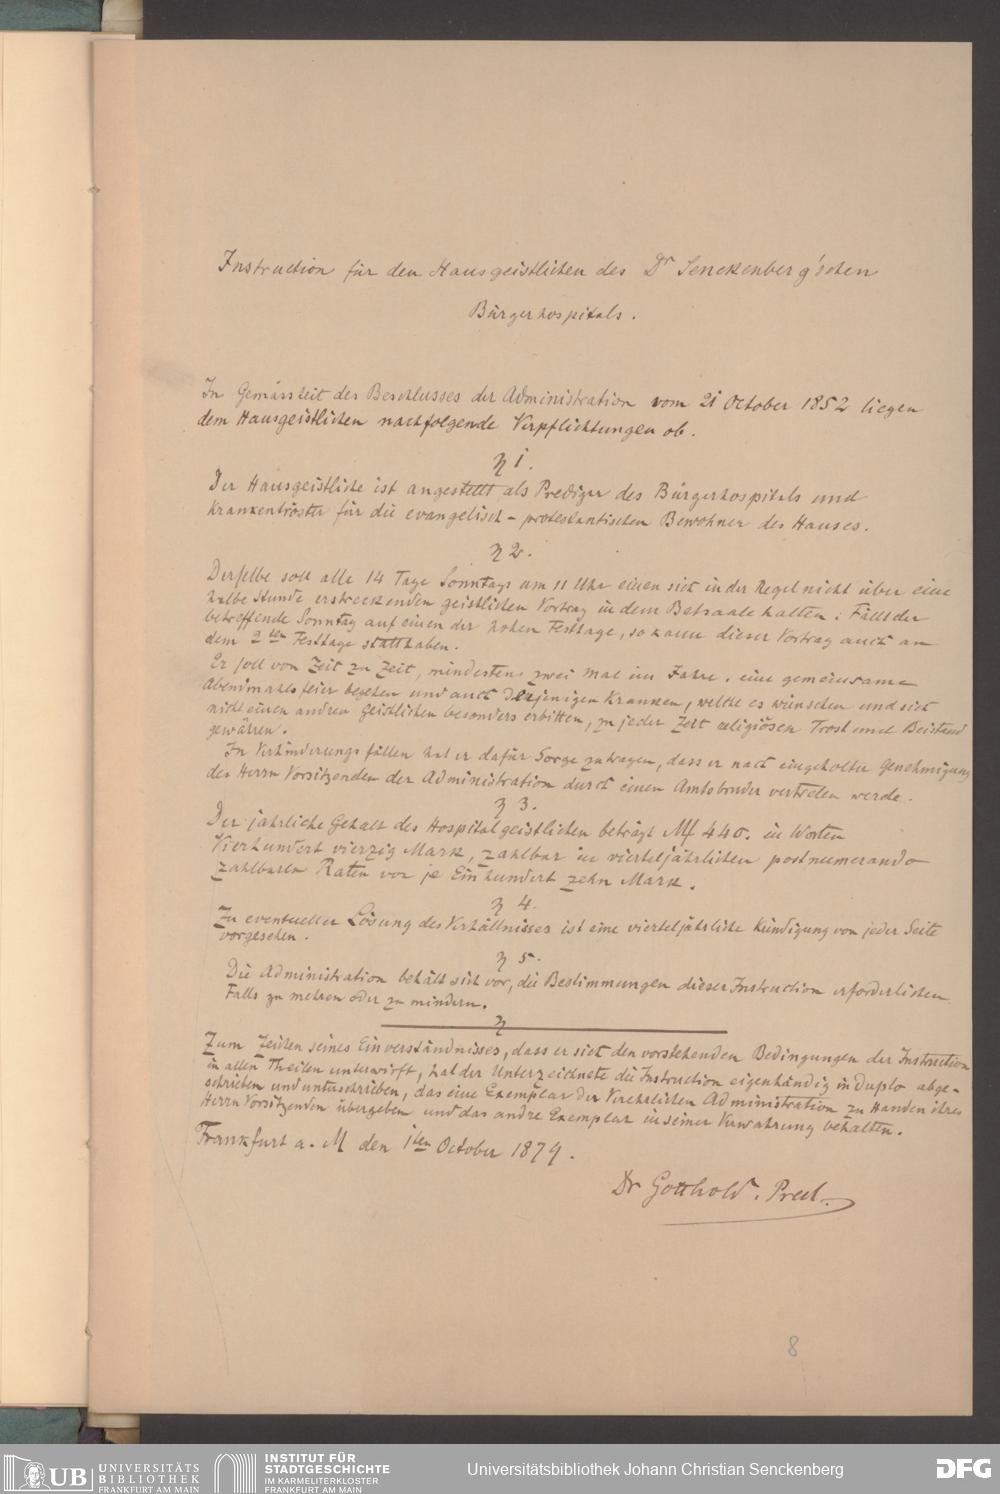 Instruction für den Hausgeistlichen des Dr Senckenberg'schen
Bürgerhospitals.
In Gemässheit des Beschlusses der Administration vom 21 October 1852 liegen
dem Hausgeistlichen nachfolgende Verpflichtungen ob.
§ 1.
Der Hausgeistliche ist angestellt als Prediger des Bürgerhospitals und
Krankentröster für die evangelisch-protestantischen Bewohner des Hauses.
§ 2.
Derselbe soll alle 14 Tage Sonntags um 11 Uhr einen sich in der Regel nicht über eine
halbe Stunde erstreckenden geistlichen Vortrag in dem Betsaale halten; Fällt der
betreffende Sonntag auf einen der hohen Festtage, so kann dieser Vortrag auch am
dem 2ten Festtage statthaben.
Er soll von Zeit zu Zeit, mindestens zwei Mal im Jahre, eine gemeinsame
Abendmahlsfeier begehen und auch derjenigen Kranken, welche es wünschen und sich
nicht einen andren Geistlichen besonders erbitten, zu jeder Zeit religiösen Trost und Beistand
gewähren.
In Verhinderungsfällen hat er dafür Sorge zu tragen, dass er nach eingeholter Genehmigung
des Herrn Vorsitzenden der Administration durch einen Amtsbruder vertreten werde.
§ 3.
Der jährliche Gehalt des Hospitalgeistlichen beträgt M 440. in Worten
Vierhundert vierzig Mark, zahlbar in vierteljährlichen postnumerando
zahlbaren Raten von je Einhundert zehn Mark.
§ 4.
Zu eventueller Lösung des Verhältnisses ist eine vierteljährliche Kündigung von jeder Seite
vorgesehen.
§ 5.
Die Administration behält sich vor, die Bestimmungen dieser Instruction erforderlichen
Falls zu mehren oder zu mindern.
§
Zum Zeichen seines Einverständnisses, dass er sich den vorstehenden Bedingungen der Instruction
in allen Theilen unterwirft, hat der Unterzeichnete die Instruction eigenhändig in Duplo abge-
schrieben und unterschrieben, das eine Exemplar der Verehrlichen Administration zu Handen ihres
Herrn Vorsitzenden übergeben und das andre Exemplar in seiner Verwahrung behalten.
Frankfurt a. M den 1ten October 1879.
Dr Gotthold.
8
UB UNIVERSITÄTS
BIBLIOTHEK
FRANKFURT AM MAIN
INSTITUT FÜR
STADTGESCHICHTE
IM KARMELITERKLOSTER
FRANKFURT AM MAIN
Universitätsbibliothek Johann Christian Senckenberg
DFG